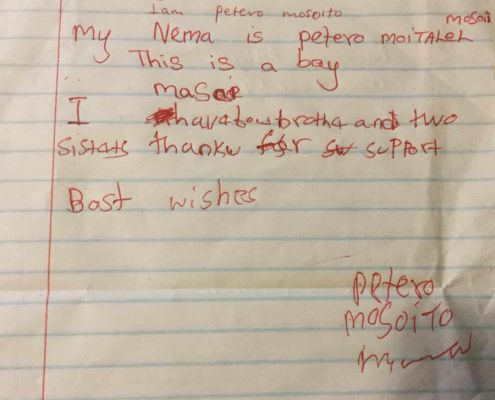 I am petero mosoito
mosoi
My Nema is petero moiTALEL
This is a bay
masai
I have tow brotha and two
sistats thankw for support
Bast wishes
petero
mosoito